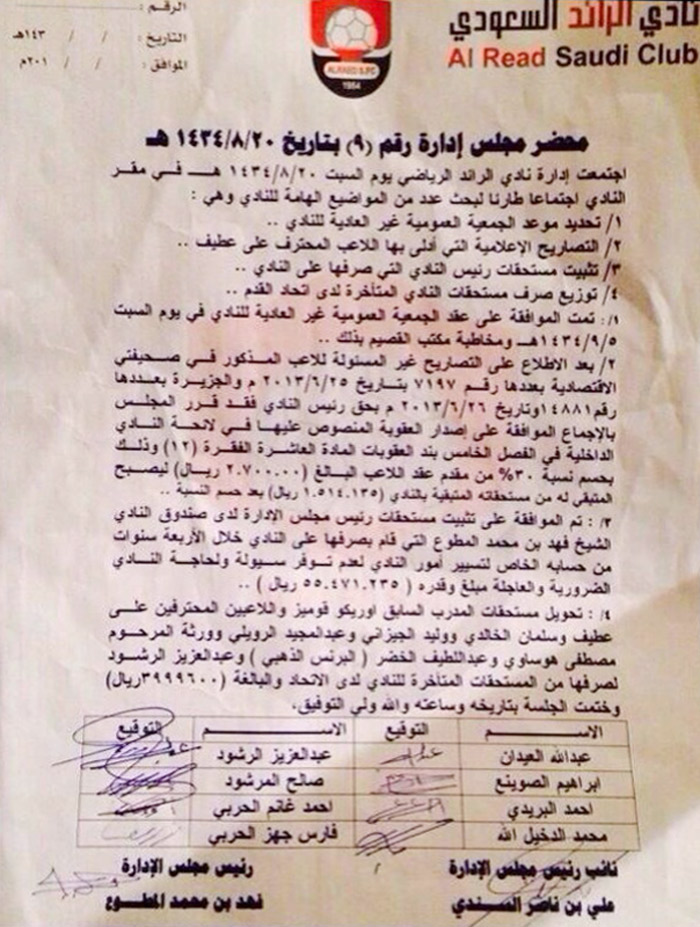 نادي الرائد السعودي
Al Read Saudi Club
ALRAED S.FC
1954
الرقم :
التاريخ : / / ١٤٣هـ
الموافق : / / ٢٠١م
محضر مجلس إدارة رقم (٩) بتاريخ ١٤٣٤/٨/٢٠ هـ
اجتمعت إدارة نادي الرائد الرياضي يوم السبت ١٤٣٤/٨/٢٠ هـ في مقر
النادي اجتماعا طارنا لبحث عدد من المواضيع الهامة للنادي وهي :
١/ تحديد موعد الجمعية العمومية غير العادية للنادي ..
٢/ التصاريح الإعلامية التي أدلى بها اللاعب المحترف على عطيف ..
٣/ تثبيت مستحقات رئيس النادي التي صرفها على النادي ..
٤/ توزيع صرف مستحقات النادي المتأخرة لدى اتحاد القدم ..
١/: تمت الموافقة على عقد الجمعية العمومية غير العادية للنادي في يوم السبت
١٤٣٤/٩/٥هـ ومخاطبة مكتب القصيم بذلك ..
٢/ بعد الاطلاع على التصاريح غير المسئولة للاعب المذكور في صحيفتي
الاقتصادية بعددها رقم ٧١٩٧ بتاريخ ٢٠١٣/٦/٢٥ م والجزيرة بعددها
رقم١٤٨٨١وتاريخ ٢٠١٣/٦/٢٦ م بحق رئيس النادي فقد قرر المجلس
بالإجماع الموافقة على إصدار العقوبة المنصوص عليها في لانحة النادي
الداخلية في الفصل الخامس بند العقوبات المادة العاشرة الفقرة (١٢) وذلك
بحسم نسبة ٣٠% من مقدم عقد اللاعب البالغ (٢.٧٠٠.٠٠ ريال) ليصبح
المتبقي له من مستحقاته المتبقية بالنادي (١.٥١٤.١٣٥ ريال) بعد حسم النسبة ..
٣/: تم الموافقة على تثبيت مستحقات رئيس مجلس الإدارة لدى صندوق النادي
الشيخ فهد بن محمد المطوع التي قام بصرفها على النادي خلال الأربعة سنوات
من حسابه الخاص لتسيير أمور النادي لعدم توفر سيولة ولحاجة النادي
الضرورية والعاجلة مبلغ وقدره ( ٥٥.٤٧١.٢٣٥ ريال ) ..
٤/: تحويل مستحقات المدرب السابق اوريكو قوميز واللاعبين المحترفين على
عطيف وسلمان الخالدي ووليد الجيزاني وعبدالمجيد الرويلي وورثة المرحوم
مصطفى هوساوي وعبداللطيف الخضر ( البرنس الذهبي ) وعبدالعزيز الرشود
لصرفها من المستحقات المتأخرة للنادي لدى الاتحاد والبالغة (٣٩٩٩٦٠٠ريال)
وختمت الجلسة بتاريخه وساعته والله ولي التوفيق،
الاســـم التوقيع الاســـم التوقيع
عبدالله العيدان عبدالعزيز الرشود
ابراهيم الصوينع صالح المرشود
احمد البريدي احمد غانم الحربي
محمد الدخيل الله فارس جهز الحربي
نائب رئيس مجلس الإدارة رئيس مجلس الإدارة
علي بن ناصر السندي فهد بن محمد المطوع